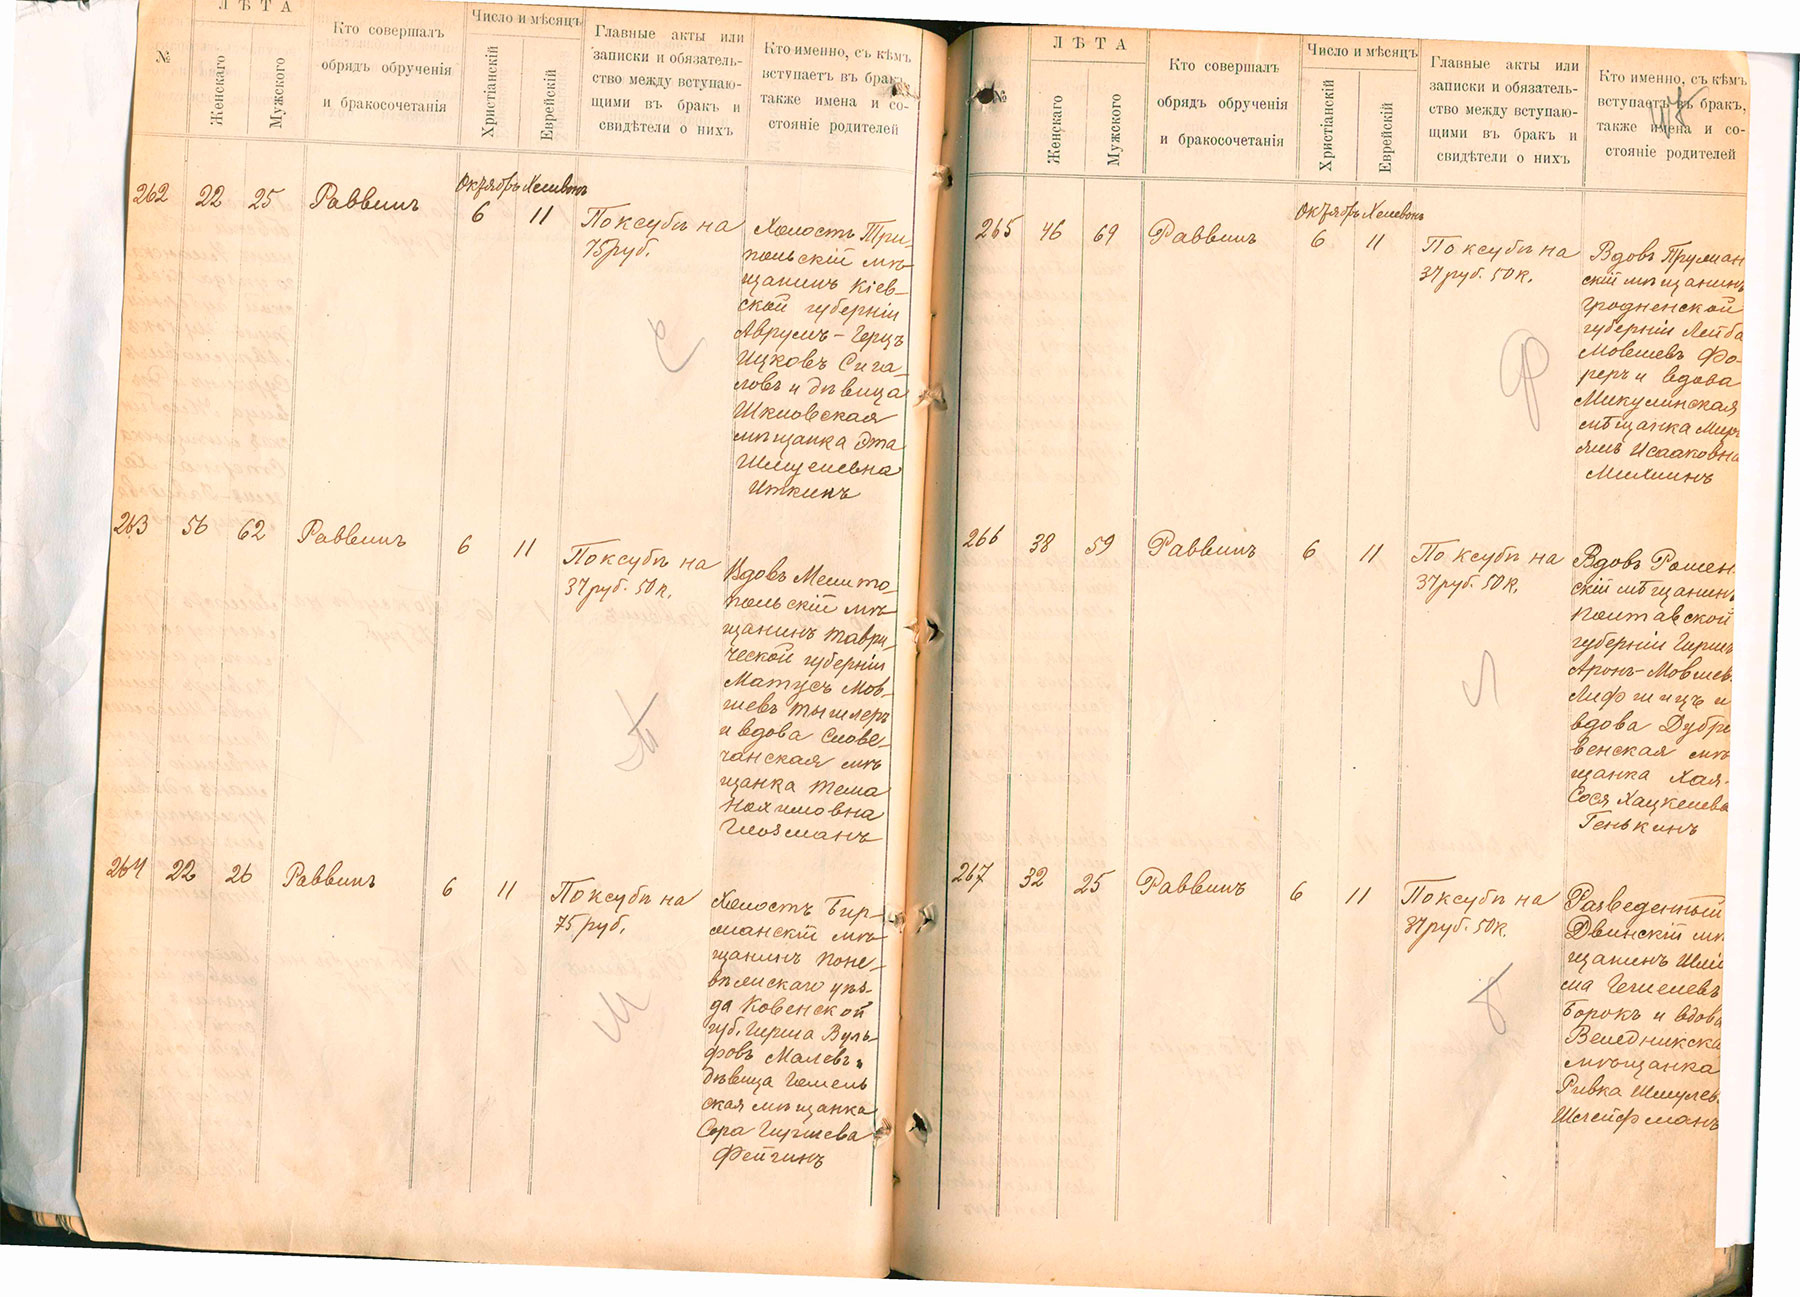 ЛѢТА
№
Женскаго
Мужского
Кто совершалъ
обрядъ обрученія
и бракосочетанія
Число и мѣсяцъ
Христіанскій
Еврейскій
Главные акты или
записки и обязатель-
ство между вступаю-
щими въ бракъ и
свидѣтели о нихъ
Кто именно, съ кѣмъ
вступаетъ въ бракъ,
также имена и со-
стояніе родителей
262 22 25 Раввинъ
Октябрь Хешвонъ
6 11
По ксубѣ на
75 руб.
Холостъ Три-
польскій мѣ-
щанинъ Кіев-
ской губерніи
Аврумъ-Герцъ
Ицковъ Сига-
ловъ и дѣвица
Шкловская
мѣщанка Эта
Шмуелевна
Иткинъ
263 56 62 Раввинъ 6 11
По ксубѣ на
37 руб. 50 к.
Вдовъ Мелито-
польскій мѣ-
щанинъ Таври-
ческой губерніи
Матусъ Мов-
шевъ Тышлеръ
и вдова Слове-
чанская мѣ-
щанка Тема
Нохимовна
Глозманъ
264 22 26 Раввинъ 6 11
По ксубѣ на
75 руб.
Холостъ Бир-
жанскій мѣ-
щанинъ Поне-
вѣжскаго уѣз-
да Ковенской
губ. Гирша Вуль-
фовъ Малевъ и
дѣвица Гомель
ская мѣщанка
Сора Гиршева
Фейгинъ
ЛѢТА
№
Женскаго
Мужского
Кто совершалъ
обрядъ обрученія
и бракосочетанія
Число и мѣсяцъ
Христіанскій
Еврейскій
Главные акты или
записки и обязатель-
ство между вступаю-
щими въ бракъ и
свидѣтели о нихъ
Кто именно, съ кѣмъ
вступаетъ въ бракъ,
также имена и со-
стояніе родителей
265 46 69 Раввинъ
Октябрь Хешвонъ
6 11
По ксубѣ на
37 руб. 50 к.
Вдовъ Пружан
скій мѣщанинъ
Гродненской
губерніи Лейба
Мовшевъ Фо-
реръ и вдова
Микулинская
мѣщанка Мирь
ямъ Исааковна
266 38 59 Раввинъ 6 11
По ксубѣ на
37 руб. 50 к.
Вдовъ Ромен
скій мѣщанинъ
Полтавской
губерніи Гирша
Аронъ-Мовшев
Лифшицъ и
вдова Дубро
венская мѣ
щанка Хая-
Сося Хацкелева
Генькинъ
267 32 25 Раввинъ 6 11
По ксубѣ на
37 руб. 50 к.
Разведенный
Двинскій мѣ
щанинъ Шлй
ма
Борокъ и вдова
Веледникска
мѣщанка
Ривка Шмулев
Шлейфманъ